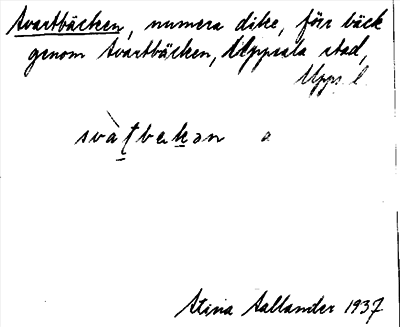 Svartbäcken, numera dike, förr bäck
genom Svartbäcken, Uppsala stad,
Upps. l.
svàt̠bek̠ən a
Stina Sallander 1937